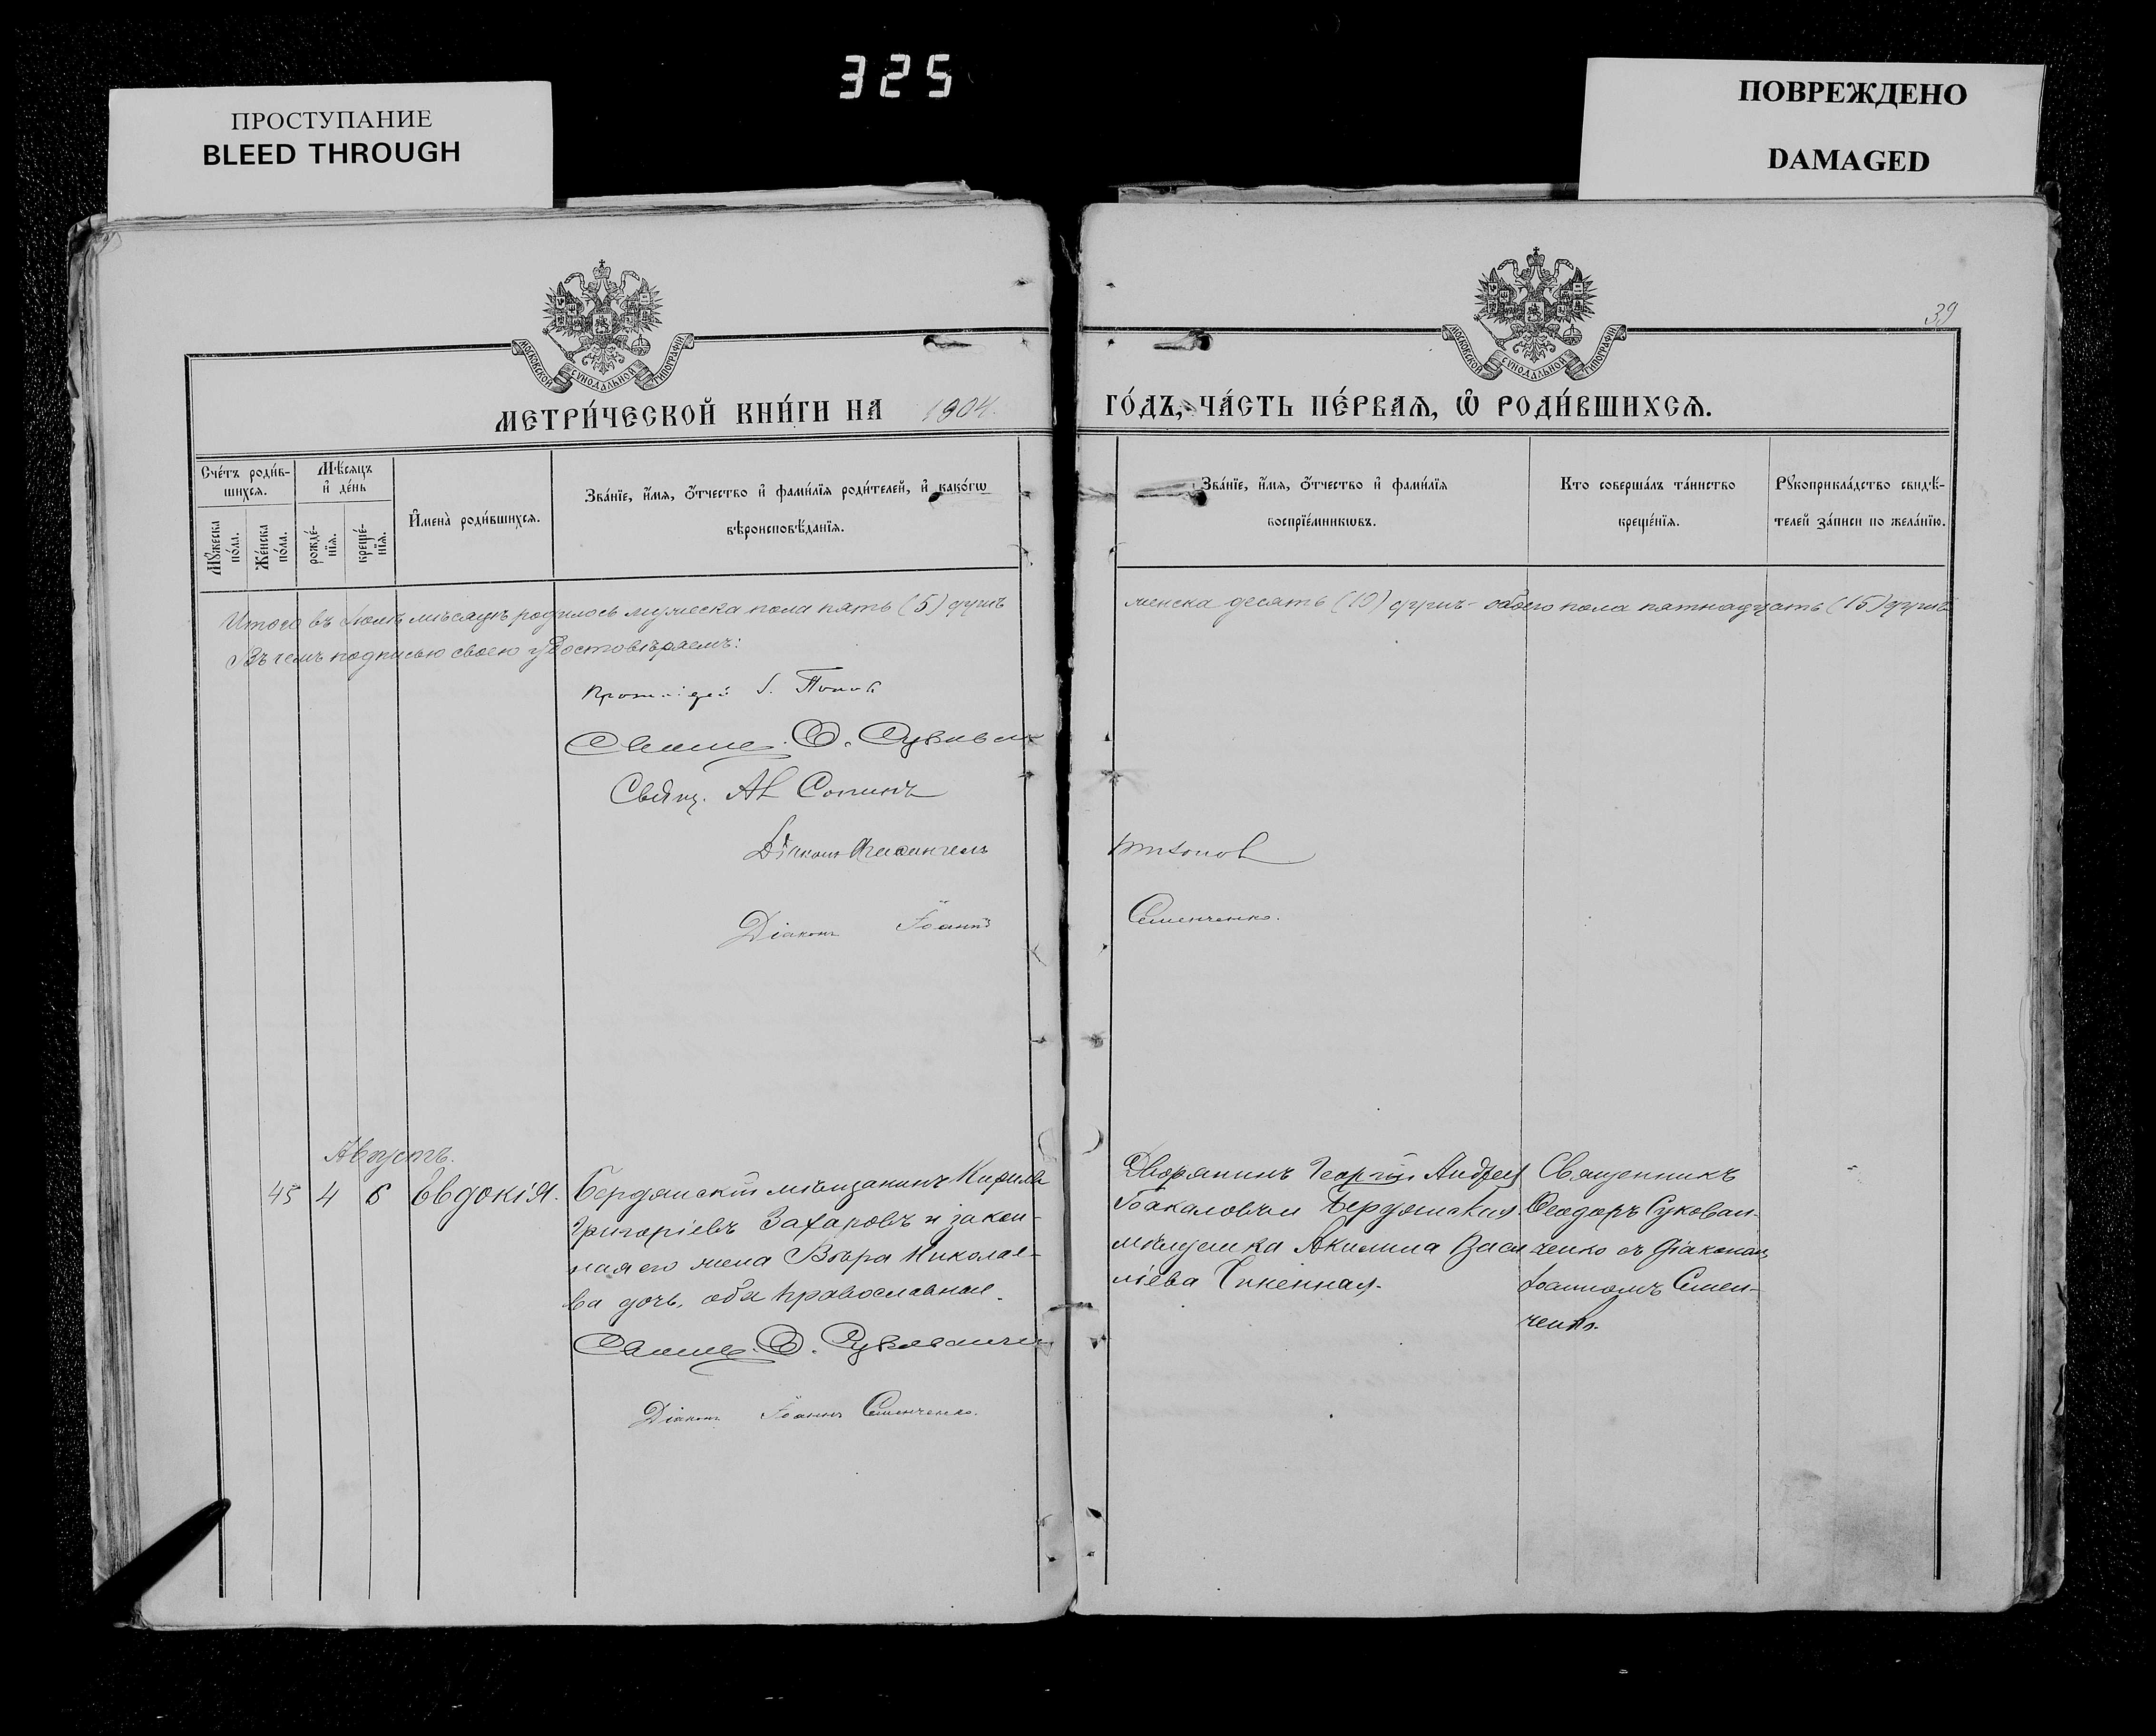 325
ПРОСТУПАНИЕ
BLEED THROUGH
ПОВРЕЖДЕНО
DAMAGED
39
МОСКОВСКОЙ СУНОДАЛЬНОЙ ТИПОГРАФІИ
МОСКОВСКОЙ СУНОДАЛЬНОЙ ТИПОГРАФІИ
МЕТРИ́ЧЕСКОЙ КНИ́ГИ НА 1904. ГО́ДЪ, ЧА́СТЬ ПЕ́РВАѦ, Ѿ РОДИ́ВШИХСѦ.
Сче́тъ роди́в-
шихсѧ.
Мѣ́сяцъ
и҆ де́нь
Мꙋ́жеска
по́ла.
Же́нска
по́ла.
рожде́-
нїѧ.
креще́-
нїѧ.
И҆мена̀ роди́вшихсѧ.
Зва́нїе, и҆́мѧ, ѻ҆́тчество и҆ фами́лїѧ роди́телей, и҆ како́гѡ
вѣроисповѣ́данїѧ.
Зва́нїе, и҆́мѧ, ѻ҆́тчество и҆ фами́лїѧ
воспрїе́мникѡвъ.
Кто соверша́лъ та́инство
креще́нїѧ.
Рꙋкоприкла́дство свидѣ́-
телей за́писи по жела́нїю.
Итого въ Іюлѣ мѣсяцѣ родилось мужеска пола пять (5) душъ женска десять (10) душъ - обоего пола пятнадцать (15) душъ
Въ чемъ подписью своею удостовѣряемъ:
Протоіерей Попов
Свящ. Ѳ. Сукован
Свящ. Сопинъ
Діаконъ
Діаконъ Іоаннъ Семенченко.
Августъ.
45 4 6 Евдокія.
Бердянскій мѣщанинъ Кирилъ
Григоріевъ Захаровъ и закон-
ная его жена Вѣра Николае-
ва дочь, оба православная.
Свящ. Ѳ. Сукованчен
Діаконъ Іоаннъ Семенченко.
Дворянинъ Георгій Андрея
Бердянская
мѣщанка Акилина Васи
ліева
Священникъ
Ѳеодоръ Сукован-
ченко съ діакономъ
Іоанномъ Семен-
ченко.